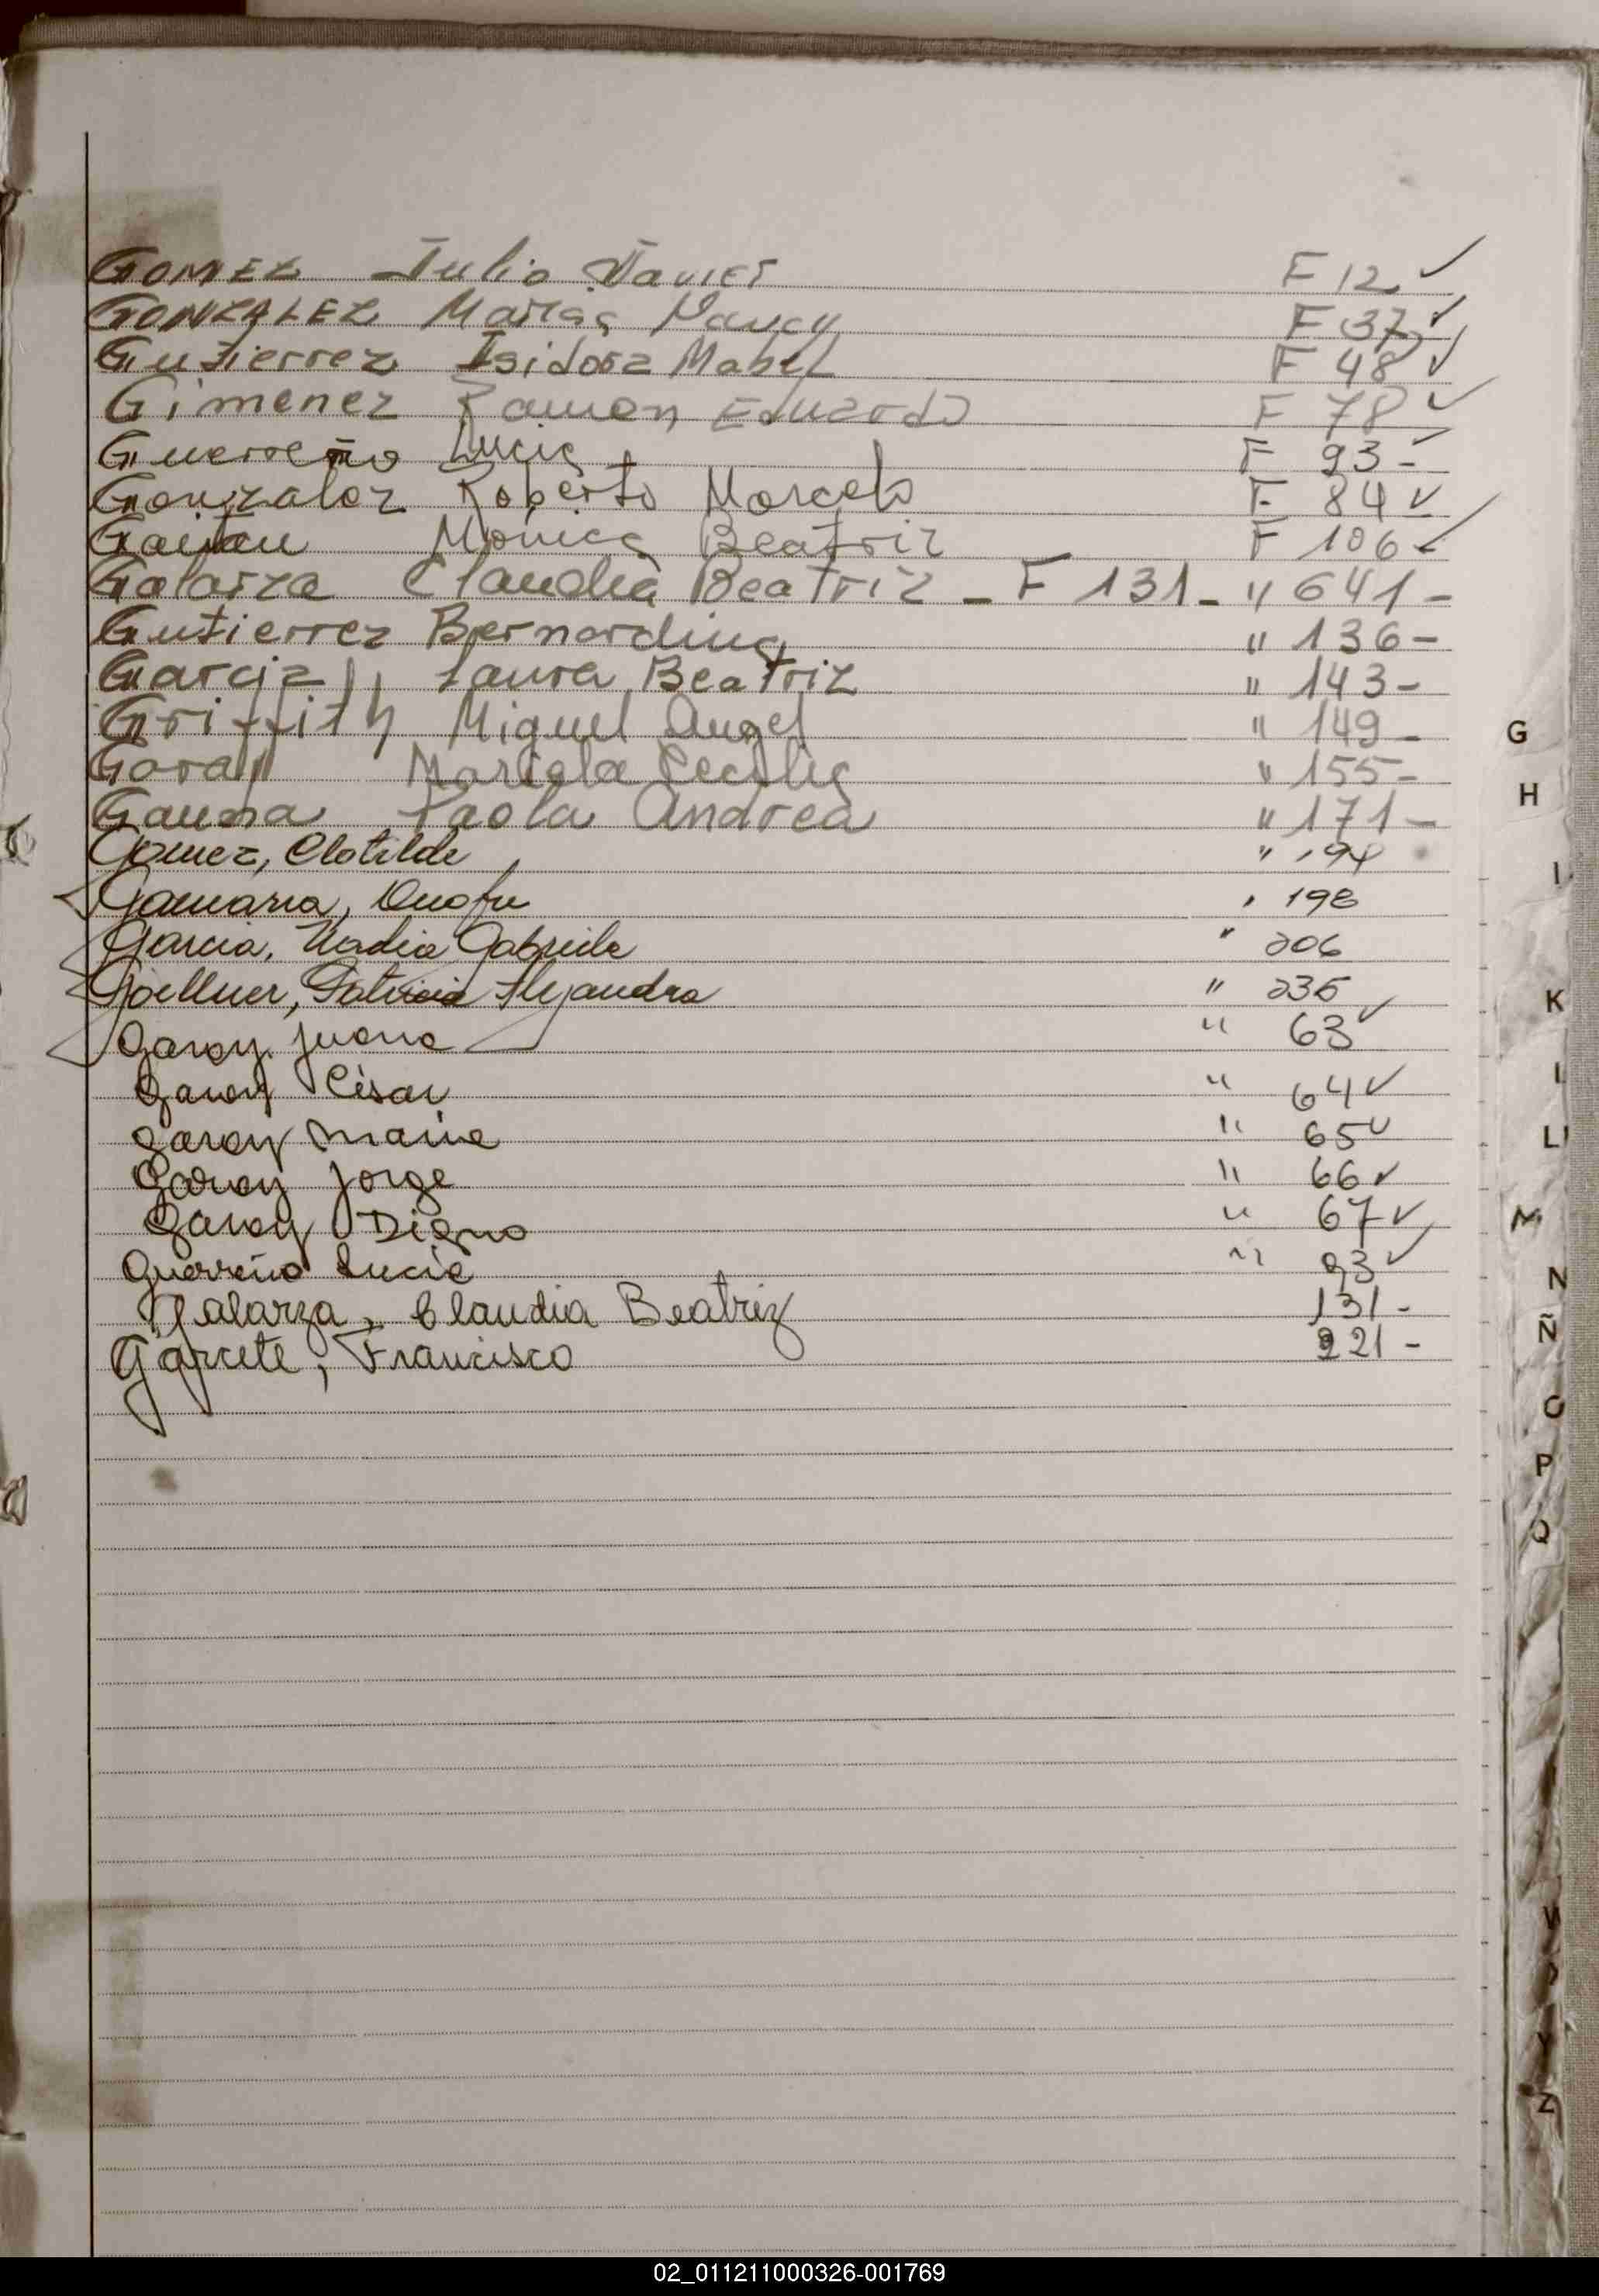 GOMEZ Julio Javier F 12 ✓
GONZALEZ Nancy F 37 ✓
Gutierrez Isidora Mabel F 48 ✓
Gimenez Ramon Eduardo F 78 ✓
Guerreño Lucia F 93 -
Gonzalez Roberto Marcelo F 84 ✓
Gaitan Monica Beatriz F 106 ✓
Galarza Claudia Beatriz - F 131 - " 641 -
Gutierrez Bernardina " 136 -
Garcia Laura Beatriz " 143 -
Griffith Miguel Angel " 149 -
Garay Mariela Cecilia " 155 -
Gauna Paola Andrea " 171 -
Gomez, Clotilde " 194
Gamarra, Onofre " 198
Garcia, Nadia Gabriela " 206
Goellner, Patricia Alejandra " 236
Garay Juana " 63 ✓
Garay César " 64 ✓
Garay Maria " 65 ✓
Garay Jorge " 66 ✓
Garay Digno " 67 ✓
Guerreño Lucia " 93 ✓
Galarza, Claudia Beatriz 131 -
Garcete, Francisco 221 -
G
H
I
K
L
Ll
M
N
Ñ
O
P
Q
W
Y
Z
02_011211000326-001769